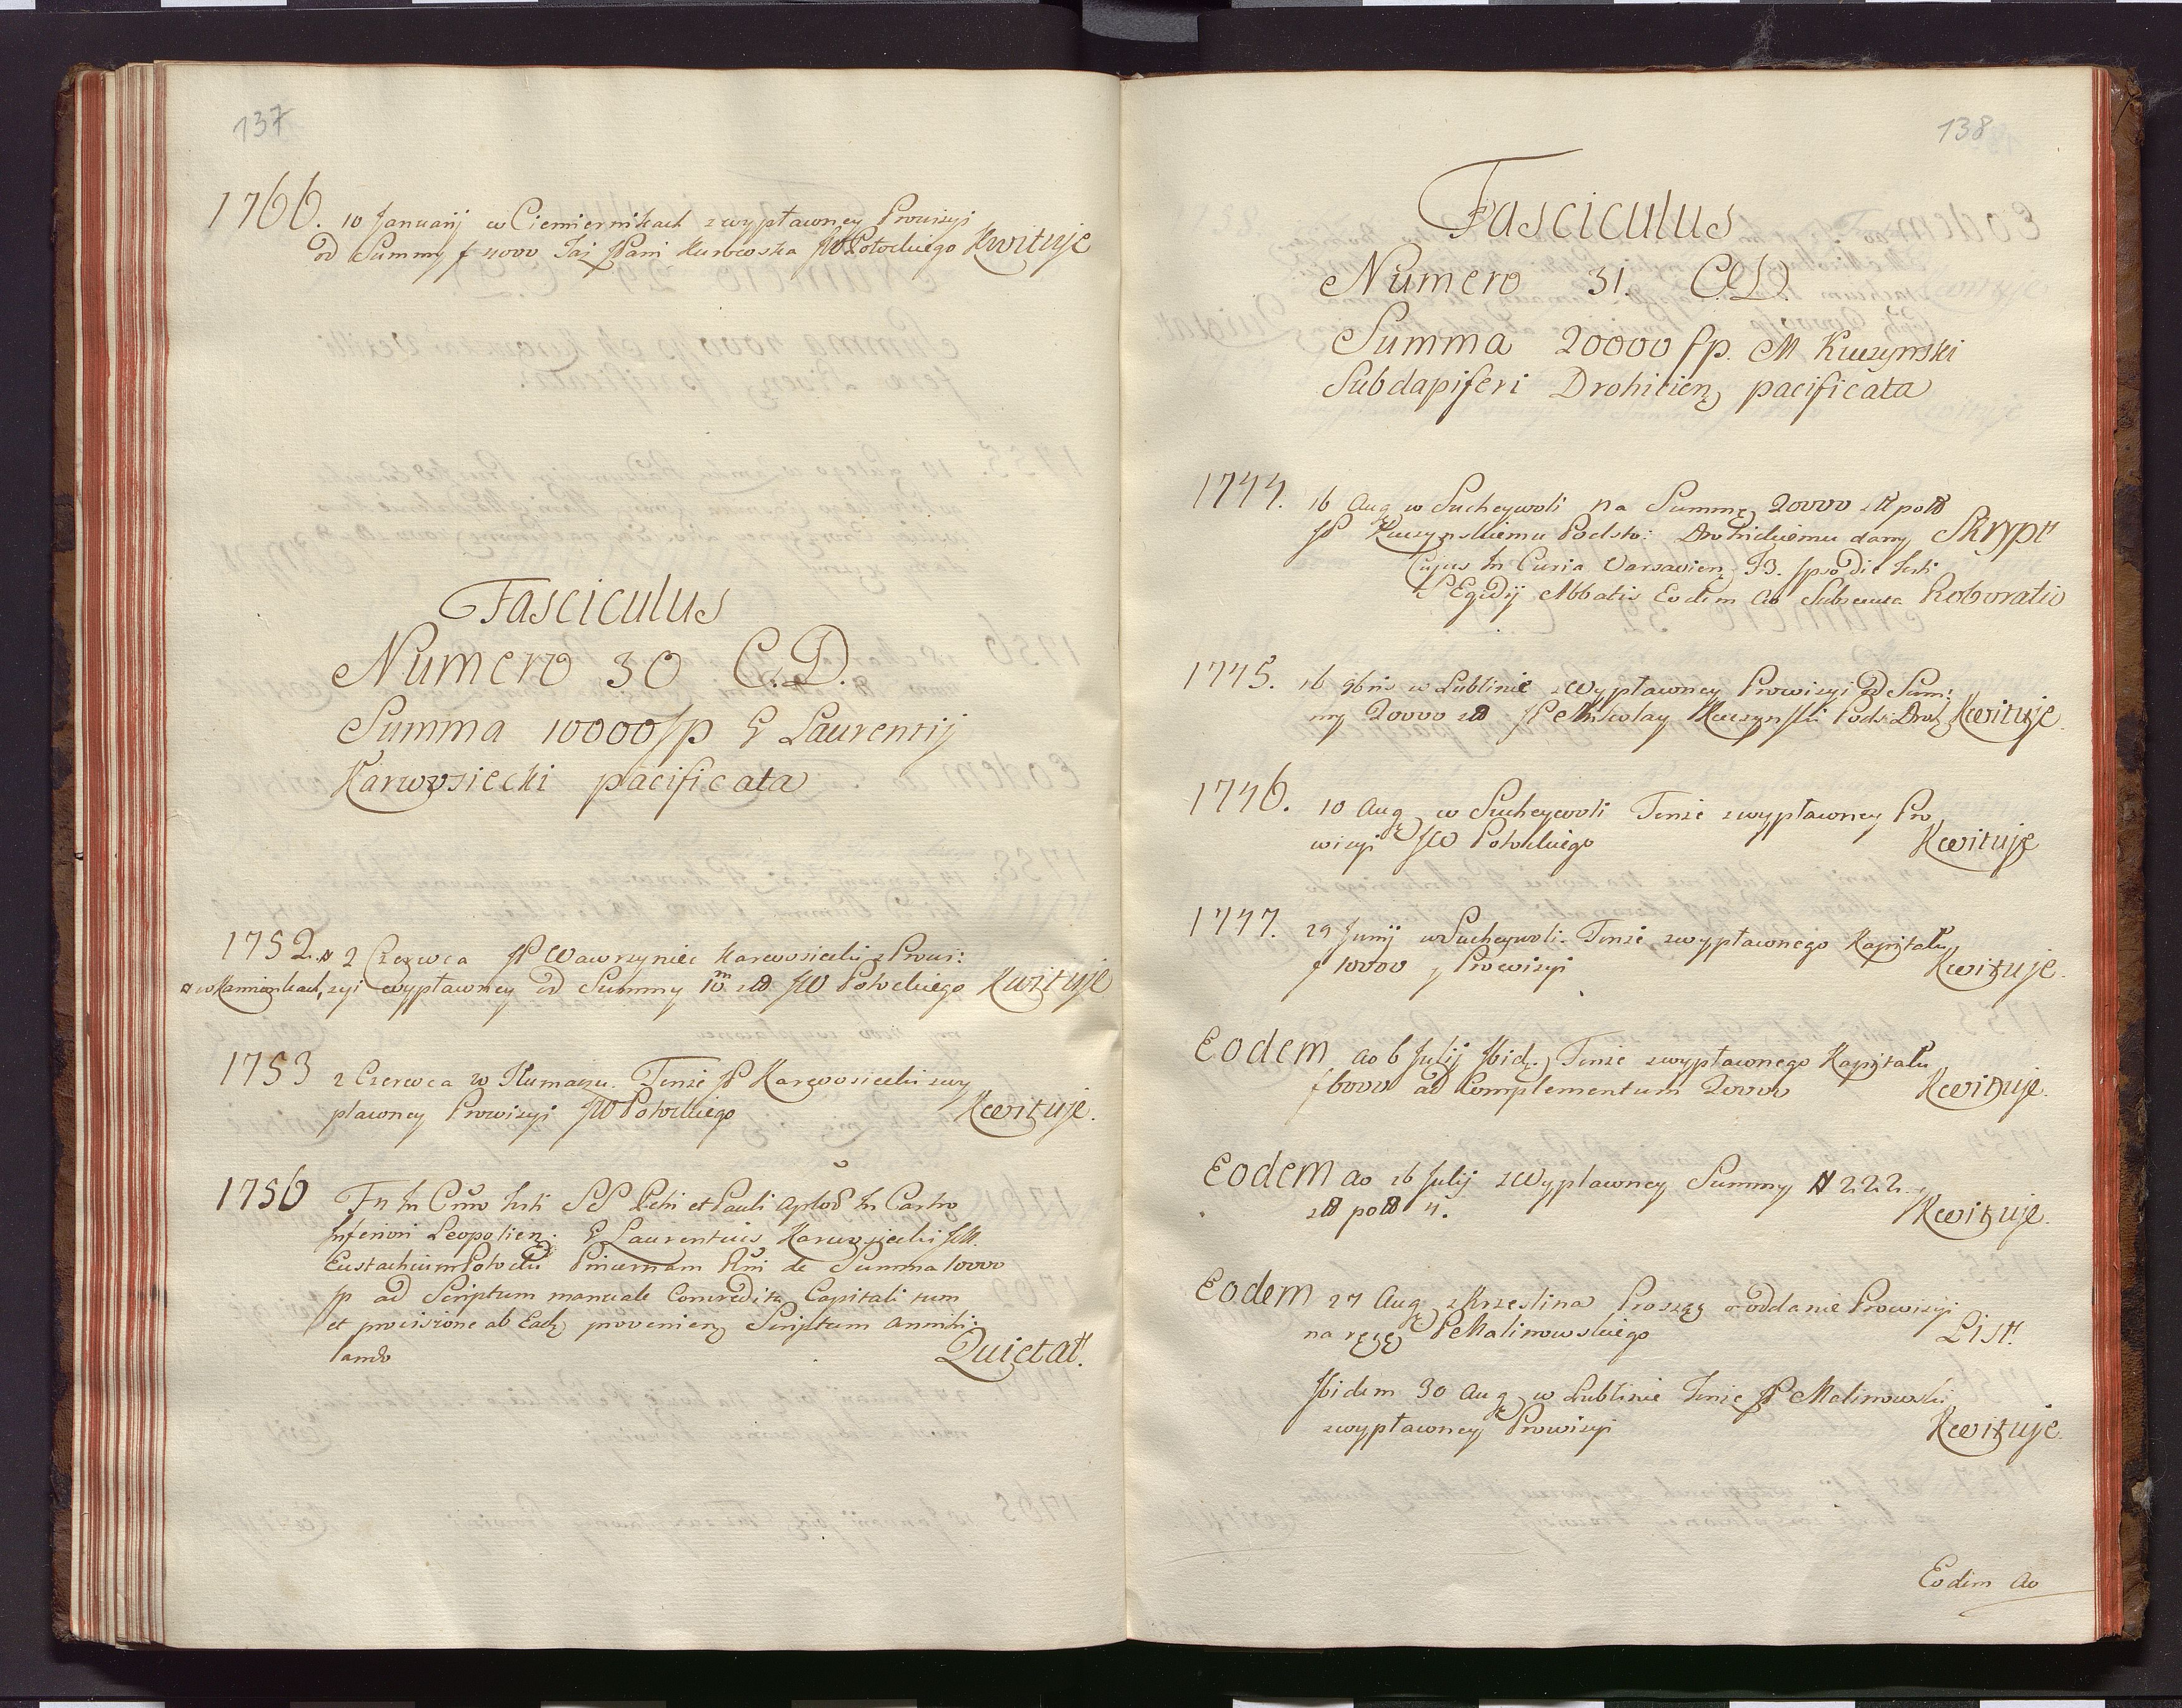 137
1766. 10 Januarij w Ciemiernikach z wypłaconey Prowizyi
od Summy f 4000 Taż JPani Kurowska JW Potockiego Kwituje
Fasciculus
Numero 30 C.D.
Summa 10000 fp G Laurentij
Karwosiecki pacificata
1752. # 2 Czerwca JP Wawrzyniec Karwosiecki z Prowi:
# w Kamionkach, zyi wypłaconey od Summy 10.m zł JW Potockiego Kwituje
1753 2 Czerwca w Tłumaczu. Tenże JP Karwosiecki z wy
płaconey Prowizyi JW Potockiego Kwituje.
1756 Fr. in Cro festi SS Petri et Pauli Aplod in Castro
Inferiori Leopolien: G Laurentius Karwosiecki JM.
Eustachium Potocki Pincernam Rni de Summa 10000
fp ad Scriptum manuale Concredita Capitali tum
et provisione ab Eadę provenienę Scriptum annihi:
lando Quietat.
138
Fasciculus
Numero 31. C.D.
Summa 20000 fp. M Kuczynski
Subdapiferi Drohicienę pacificata
1744. 16 Augę w Sucheywoli na Summę 20000 zł pol
JP Kuczynskiemu Podsto: Drohickiemu dany Skrypt
Cujus in Curia Varsavienę F3. ipso die festi
S Egidij Abbatis Eodem Ao Subsecuta Roboratio
1745. 16 9bris w Lublinie z Wypłaconey Prowizyi od Sum:
my 20000 zł JP Mikołay Kuczynski Pods: Droh Kwituje.
1746. 10 Augę w Sucheywoli Tenże z wypłaconey Pro
wizyi JW Potockiego Kwituje
1747. 29 Junij w Sucheywoli. Tenże z wypłaconego Kapitału
f 10000 y Prowizyi Kwituje.
Eodem ao 6 Julij Ibidę. Tenże z wypłaconego Kapitału
f 6000 ad Complementum 20000 Kwituje.
Eodem ao 26 Julij z Wypłaconey Summy # 222.
zł pol 4. Kwituje.
Eodem 27 Augę z Krzeslina Proszący o oddanie Prowizyi
na ręcę P Malinowskiego List.
Ibidem 30 Augę w Lublinie Tenże JP Malinowski
z wypłaconey Prowizyi Kwituje.
Eodem Ao